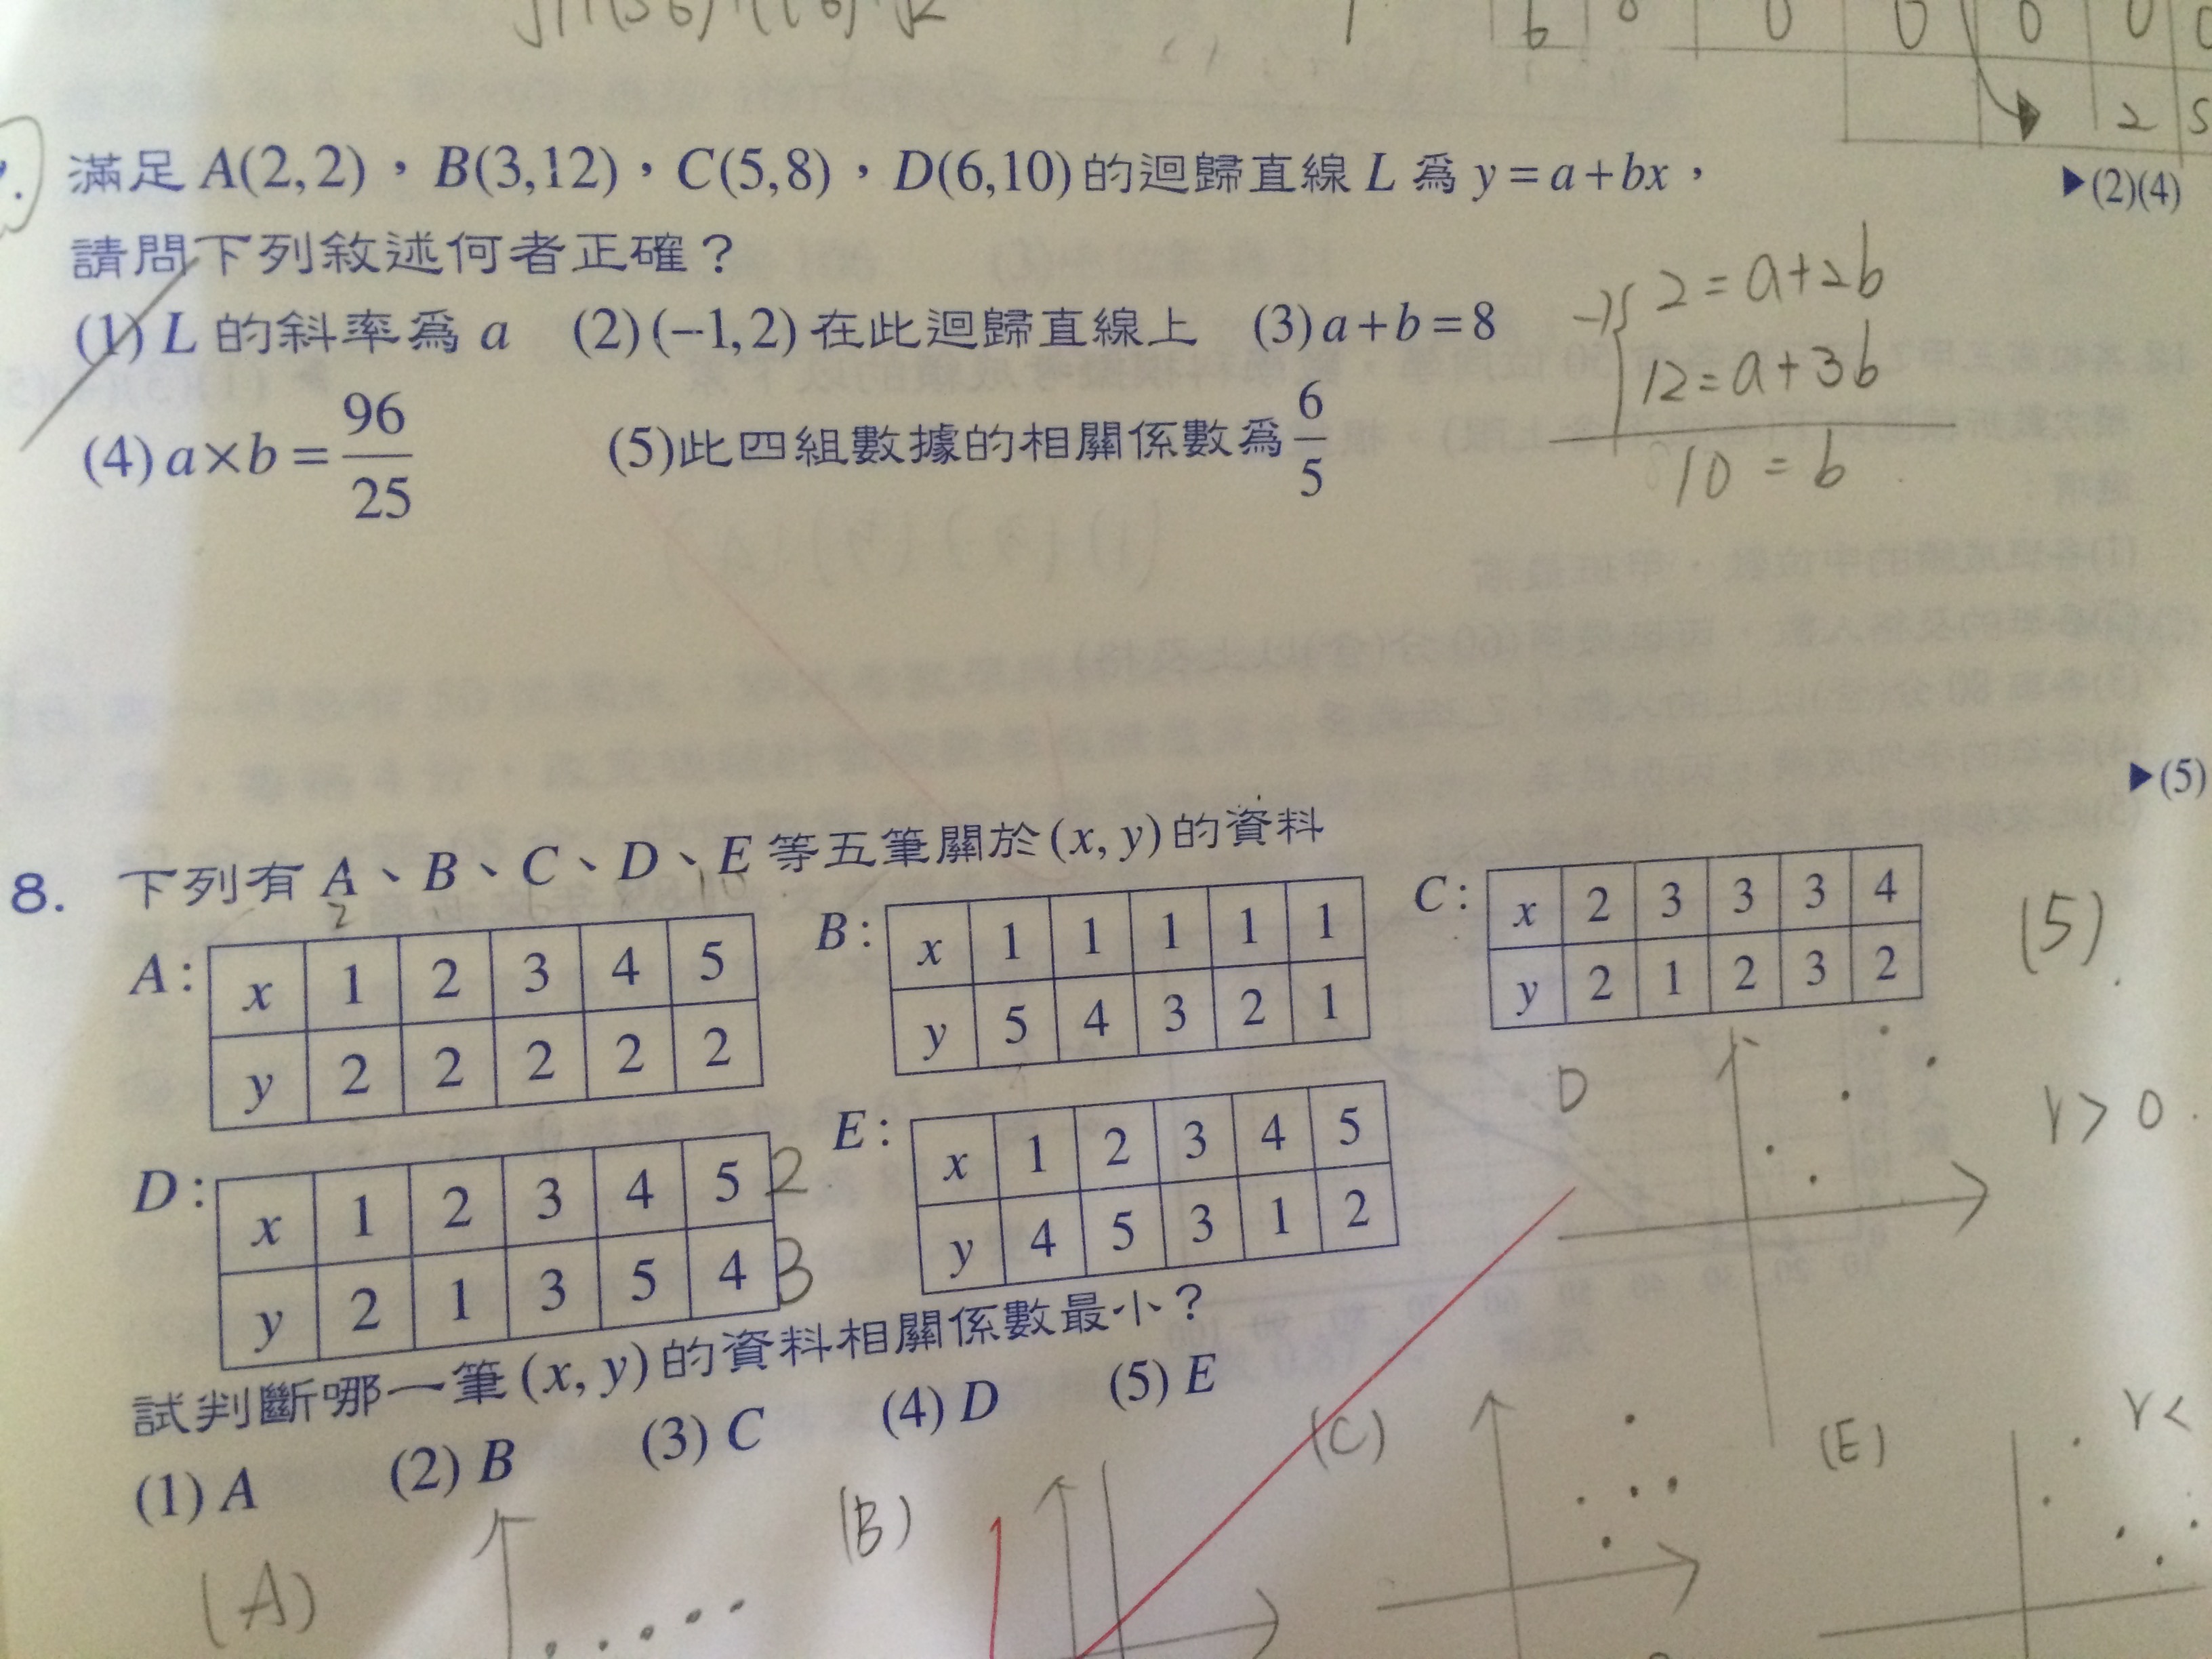 6 0 0 0 0 0
2 5
滿足 A(2,2)，B(3,12)，C(5,8)，D(6,10)的迴歸直線 L 為 y=a+bx， ▶(2)(4)
請問下列敘述何者正確？
(1) L 的斜率為 a (2)(−1,2)在此迴歸直線上 (3) a+b=8
(4) a×b=96/25 (5)此四組數據的相關係數為 6/5
2=a+2b
12=a+3b
10=b
▶(5)
8. 下列有 A、B、C、D、E 等五筆關於(x, y)的資料
2
A: x 1 2 3 4 5
y 2 2 2 2 2
B: x 1 1 1 1 1
y 5 4 3 2 1
C: x 2 3 3 3 4
y 2 1 2 3 2
(5)
D: x 1 2 3 4 5 2
y 2 1 3 5 4 3
E: x 1 2 3 4 5
y 4 5 3 1 2
D
r>0
試判斷哪一筆(x, y)的資料相關係數最小？
(1) A (2) B (3) C (4) D (5) E
(A)
(B)
(C)
(E)
r<